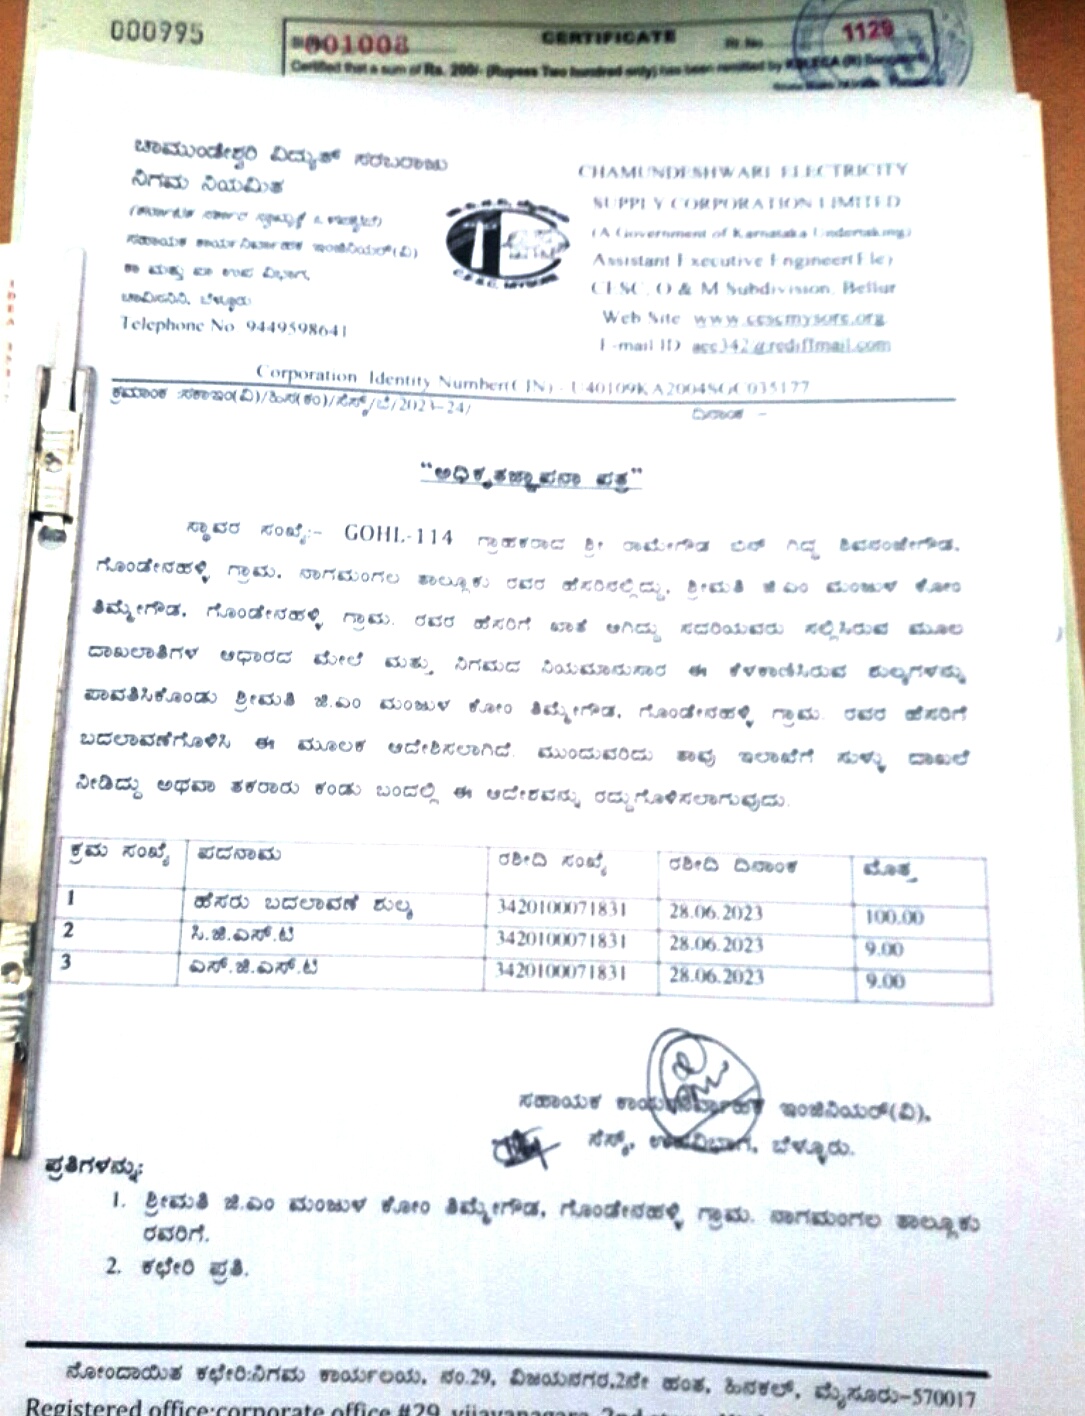 000995
001008
CERTIFICATE
1129
Certified that a sum of Rs. 200/- (Rupees Two hundred only) has been remitted by
ಚಾಮುಂಡೇಶ್ವರಿ ವಿದ್ಯುತ್ ಸರಬರಾಜು
ನಿಗಮ ನಿಯಮಿತ
ಸಹಾಯಕ ಕಾರ್ಯನಿರ್ವಾಹಕ ಇಂಜಿನಿಯರ್(ವಿ)
ಕಾ ಮತ್ತು ಪಾ ಉಪ ವಿಭಾಗ,
ಚಾವಿಸನಿನಿ, ಬೆಳ್ಳೂರು
Telephone No 9449598641
CHAMUNDESHWARI ELECTRICITY
SUPPLY CORPORATION LIMITED
(A Government of Karnataka Undertaking)
Assistant Executive Engineer(Ele)
CESC, O & M Subdivision, Bellur
Web Site www.cescmysore.org
E-mail ID aee342@rediffmail.com
Corporation Identity Number(CIN) - U40109KA2004SGC035177
ಕ್ರಮಾಂಕ :ಸಕಾಇಂ(ವಿ)/ಹಿಸ(ಕಂ)/ಸೆಸ್ಕ್/ಬೆ/2023-24/
ದಿನಾಂಕ -
“ಅಧಿಕೃತಜ್ಞಾಪನಾ ಪತ್ರ”
ಸ್ಥಾವರ ಸಂಖ್ಯೆ:- GOHL-114 ಗ್ರಾಹಕರಾದ ಶ್ರೀ ರಾಮೇಗೌಡ ಬಿನ್ ಗಿದ್ದ ಶಿವನಂಜೇಗೌಡ,
ಗೊಂಡೇನಹಳ್ಳಿ ಗ್ರಾಮ, ನಾಗಮಂಗಲ ತಾಲ್ಲೂಕು ರವರ ಹೆಸರಿನಲ್ಲಿದ್ದು, ಶ್ರೀಮತಿ ಜಿ.ಎಂ ಮಂಜುಳ ಕೋಂ
ತಿಮ್ಮೇಗೌಡ, ಗೊಂಡೇನಹಳ್ಳಿ ಗ್ರಾಮ. ರವರ ಹೆಸರಿಗೆ ಖಾತೆ ಆಗಿದ್ದು ಸದರಿಯವರು ಸಲ್ಲಿಸಿರುವ ಮೂಲ
ದಾಖಲಾತಿಗಳ ಆಧಾರದ ಮೇಲೆ ಮತ್ತು ನಿಗಮದ ನಿಯಮಾನುಸಾರ ಈ ಕೆಳಕಾಣಿಸಿರುವ ಶುಲ್ಕಗಳನ್ನು
ಪಾವತಿಸಿಕೊಂಡು ಶ್ರೀಮತಿ ಜಿ.ಎಂ ಮಂಜುಳ ಕೋಂ ತಿಮ್ಮೇಗೌಡ, ಗೊಂಡೇನಹಳ್ಳಿ ಗ್ರಾಮ. ರವರ ಹೆಸರಿಗೆ
ಬದಲಾವಣೆಗೊಳಿಸಿ ಈ ಮೂಲಕ ಆದೇಶಿಸಲಾಗಿದೆ. ಮುಂದುವರಿದು ತಾವು ಇಲಾಖೆಗೆ ಸುಳ್ಳು ದಾಖಲೆ
ನೀಡಿದ್ದು ಅಥವಾ ತಕರಾರು ಕಂಡು ಬಂದಲ್ಲಿ ಈ ಆದೇಶವನ್ನು ರದ್ದುಗೊಳಿಸಲಾಗುವುದು.
ಕ್ರಮ ಸಂಖ್ಯೆ ಪದನಾಮ ರಶೀದಿ ಸಂಖ್ಯೆ ರಶೀದಿ ದಿನಾಂಕ ಮೊತ್ತ
1 ಹೆಸರು ಬದಲಾವಣೆ ಶುಲ್ಕ 3420100071831 28.06.2023 100.00
2 ಸಿ.ಜಿ.ಎಸ್.ಟಿ 3420100071831 28.06.2023 9.00
3 ಎಸ್.ಜಿ.ಎಸ್.ಟಿ 3420100071831 28.06.2023 9.00
ಸಹಾಯಕ ಕಾರ್ಯನಿರ್ವಾಹಕ ಇಂಜಿನಿಯರ್(ವಿ),
ಸೆಸ್ಕ್, ಉಪವಿಭಾಗ, ಬೆಳ್ಳೂರು.
ಪ್ರತಿಗಳನ್ನು:
1. ಶ್ರೀಮತಿ ಜಿ.ಎಂ ಮಂಜುಳ ಕೋಂ ತಿಮ್ಮೇಗೌಡ, ಗೊಂಡೇನಹಳ್ಳಿ ಗ್ರಾಮ. ನಾಗಮಂಗಲ ತಾಲ್ಲೂಕು
ರವರಿಗೆ.
2. ಕಛೇರಿ ಪ್ರತಿ.
ನೋಂದಾಯಿತ ಕಛೇರಿ:ನಿಗಮ ಕಾರ್ಯಲಯ, ನಂ.29, ವಿಜಯನಗರ,2ನೇ ಹಂತ, ಹಿನಕಲ್, ಮೈಸೂರು-570017
Registered office:corporate office #29, vijayanagara, 2nd